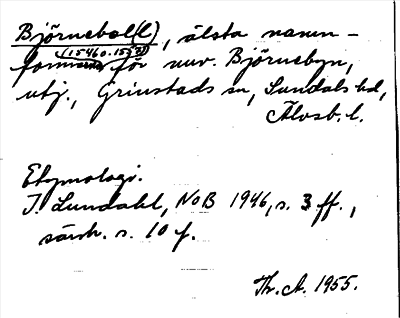 Björnebol(l), älsta namn-
formerna (1546 o. 1553) för nuv. Björnebyn,
utj., Grinstads sn, Sundals hd,
Älvsb. l.
Etymologi.
I. Lundahl, NoB 1946, s. 3 ff.,
särsk. s. 10 f.
Th. A. 1955.